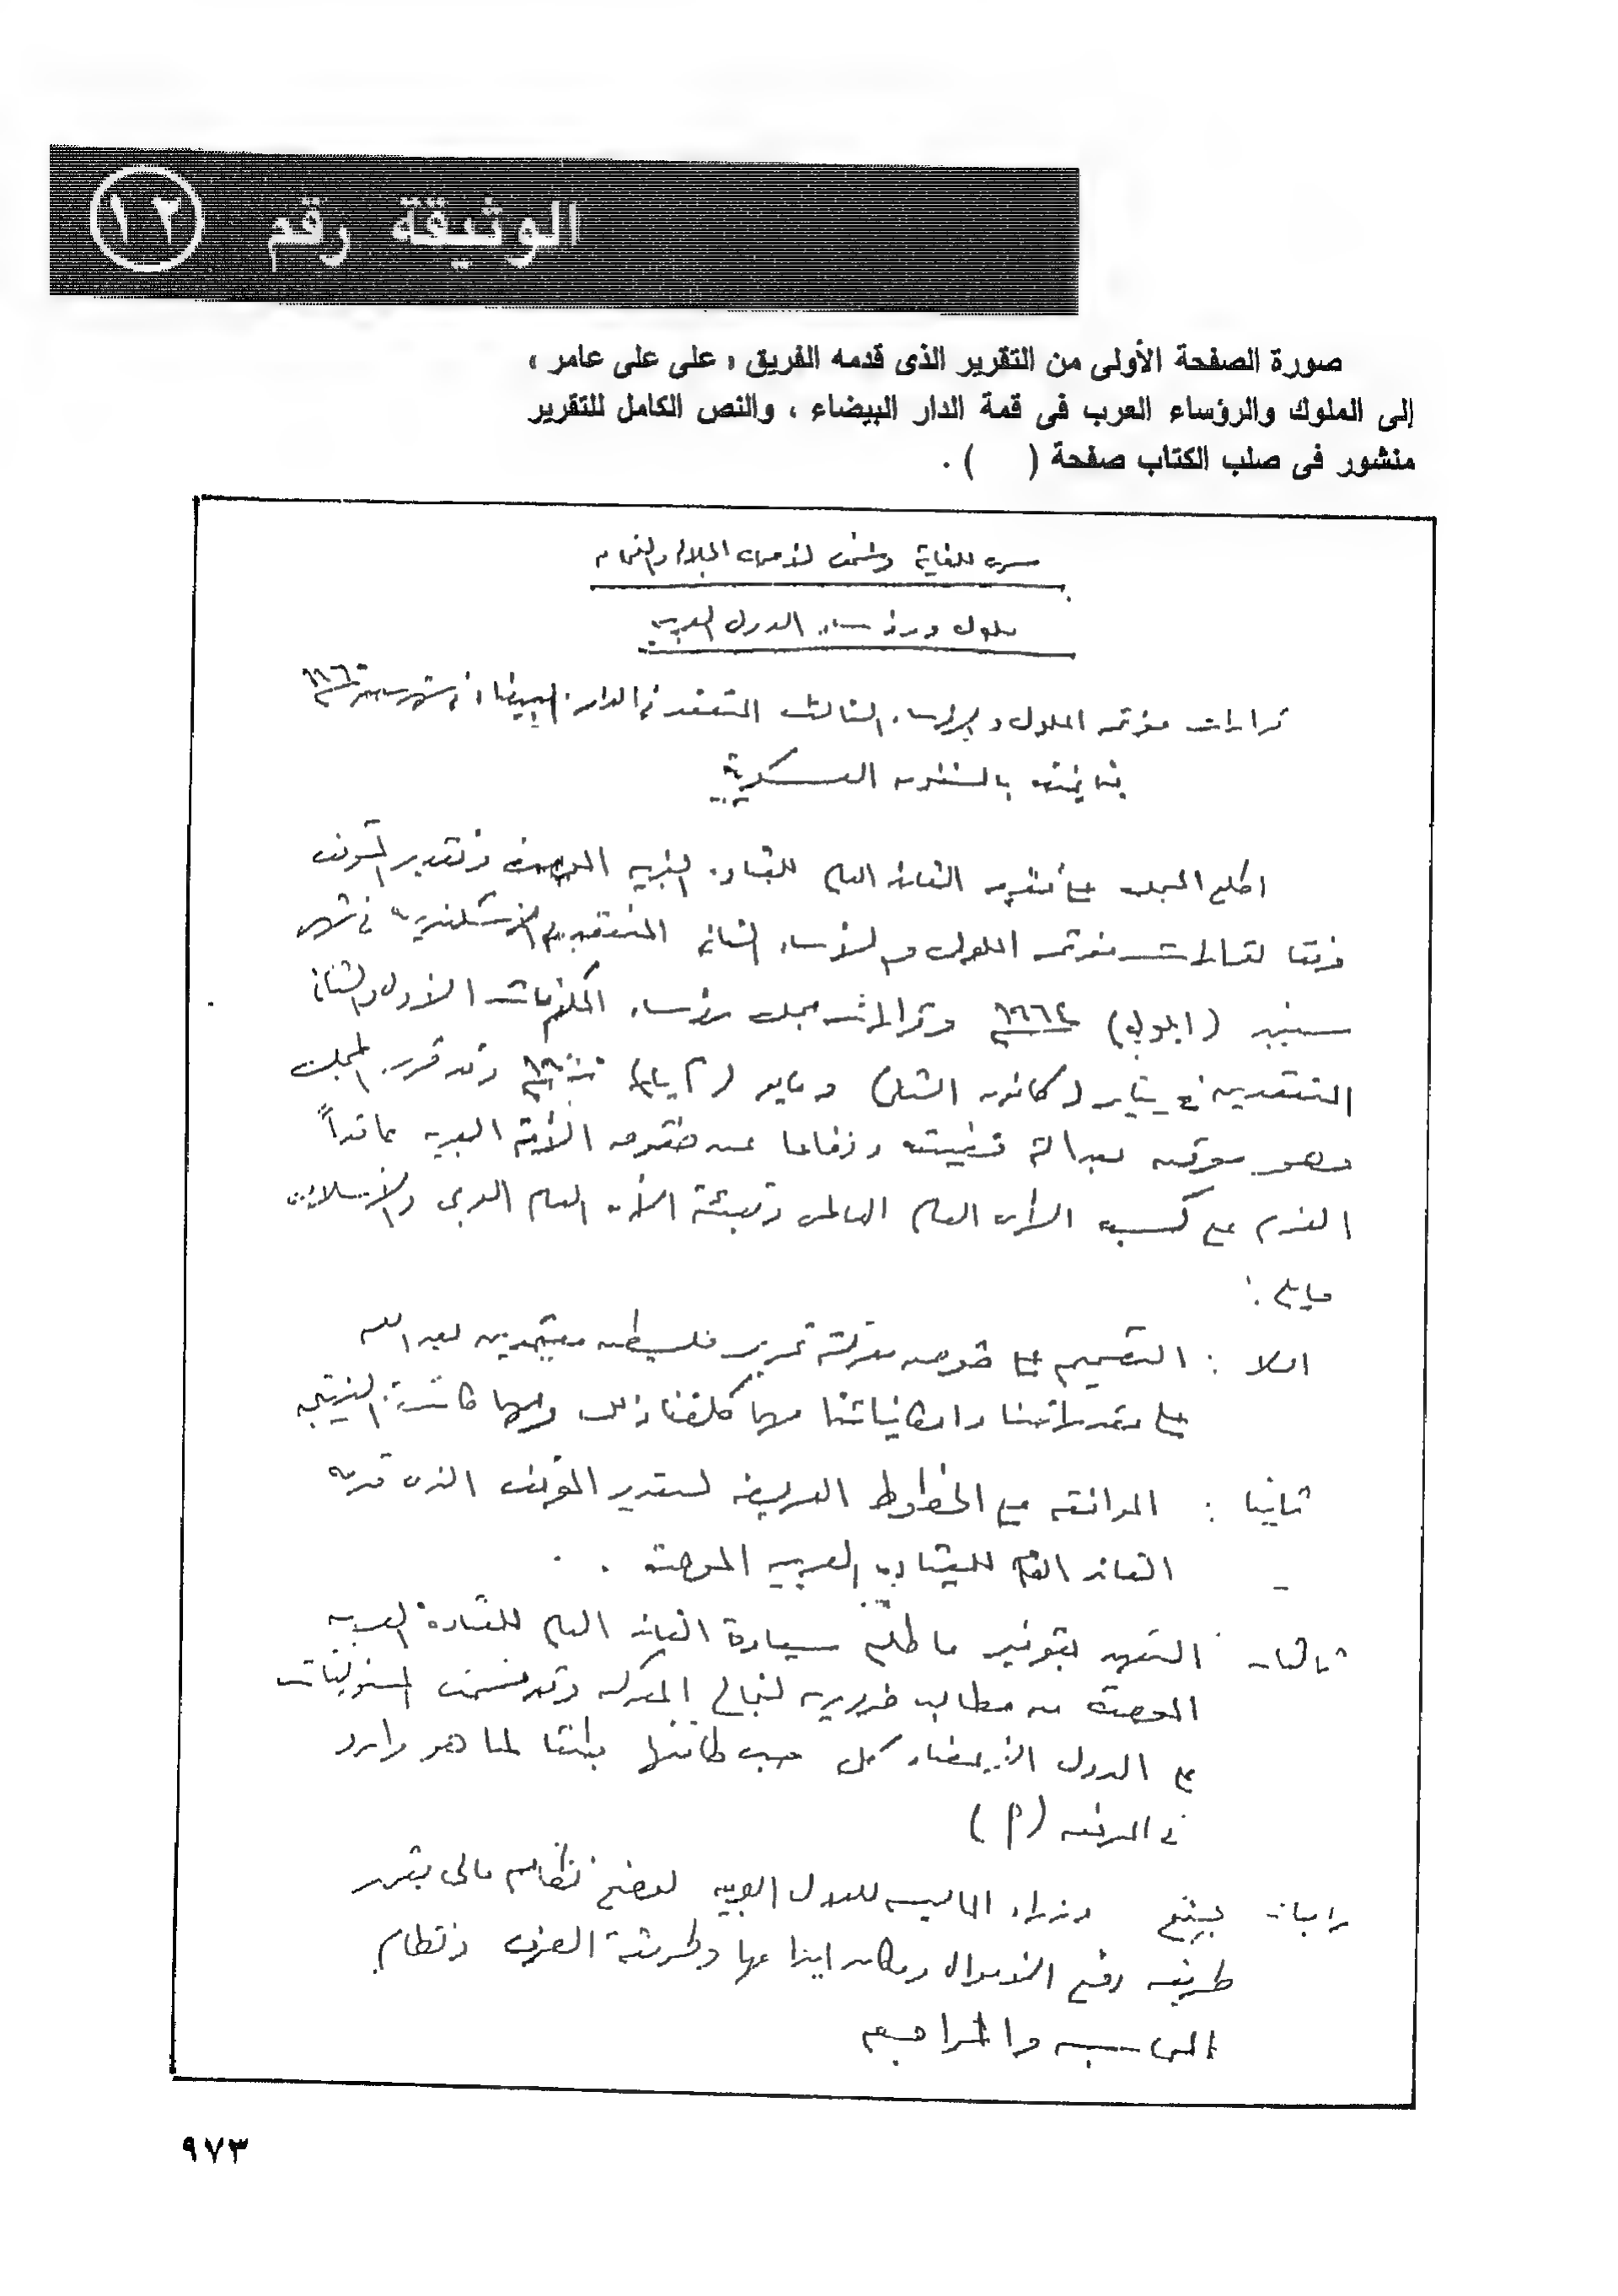 الوثيقة رقم ١٢
صورة الصفحة الأولى من التقرير الذى قدمه الفريق « على على عامر »
إلى الملوك والرؤساء العرب فى قمة الدار البيضاء ، والنص الكامل للتقرير
منشور فى صلب الكتاب صفحة (    ) .
سرى للغاية لأصحاب الجلالة والفخامة
ملوك ورؤساء الدول العربية
قرارات مؤتمر الملوك والرؤساء الثالث المنعقد فى الدار البيضاء فى شهر سبتمبر
بالشئون العسكرية
اطلع المجلس على تقرير القائد العام للقيادة العربية الموحدة وتقدير الموقف
وفقا لقرارات مؤتمر الملوك والرؤساء الثانى المنعقد فى الاسكندرية فى شهر
سبتمبر (ايلول) ١٩٦٤ وقرارات مجلس رؤساء الحكومات الأول والثانى
المنعقدين فى يناير (كانون الثانى) ومايو (ايار) وقد قرر المجلس
وهو بعدالة قضيته ودفاعا عن حقوق الأمة العربية عاقداً
العزم على كسب الرأى العام العالمى وتعبئة الرأى العام العربى والاسلامى
ما يلى :
اولا : التصميم على خوض معركة تحرير فلسطين معتمدين بعد الله
على مقدراتنا وامكانياتنا مهما كلفنا ذلك ومهما كانت النتيجة
ثانيا : الموافقة على الخطوط العريضة لتقدير الموقف الذى قدمه
القائد العام للقيادة العربية الموحدة .
ثالثا - التعهد بتوفير ما طلبه سيادة القائد العام للقيادة العربية
الموحدة من مطالب ضرورية لنجاح المعركة وقد المسئوليات
على الدول الأعضاء كل حسب طاقتها طبقا لما هو وارد
فى المرفق (أ)
رابعا - يجتمع وزراء المالية للدول العربية لوضع نظام مالى يقرر
طريقة دفع الاموال ومكان ايداعها وطريقة الصرف ونظام
المحاسبة والمراجعة
٩٧٣